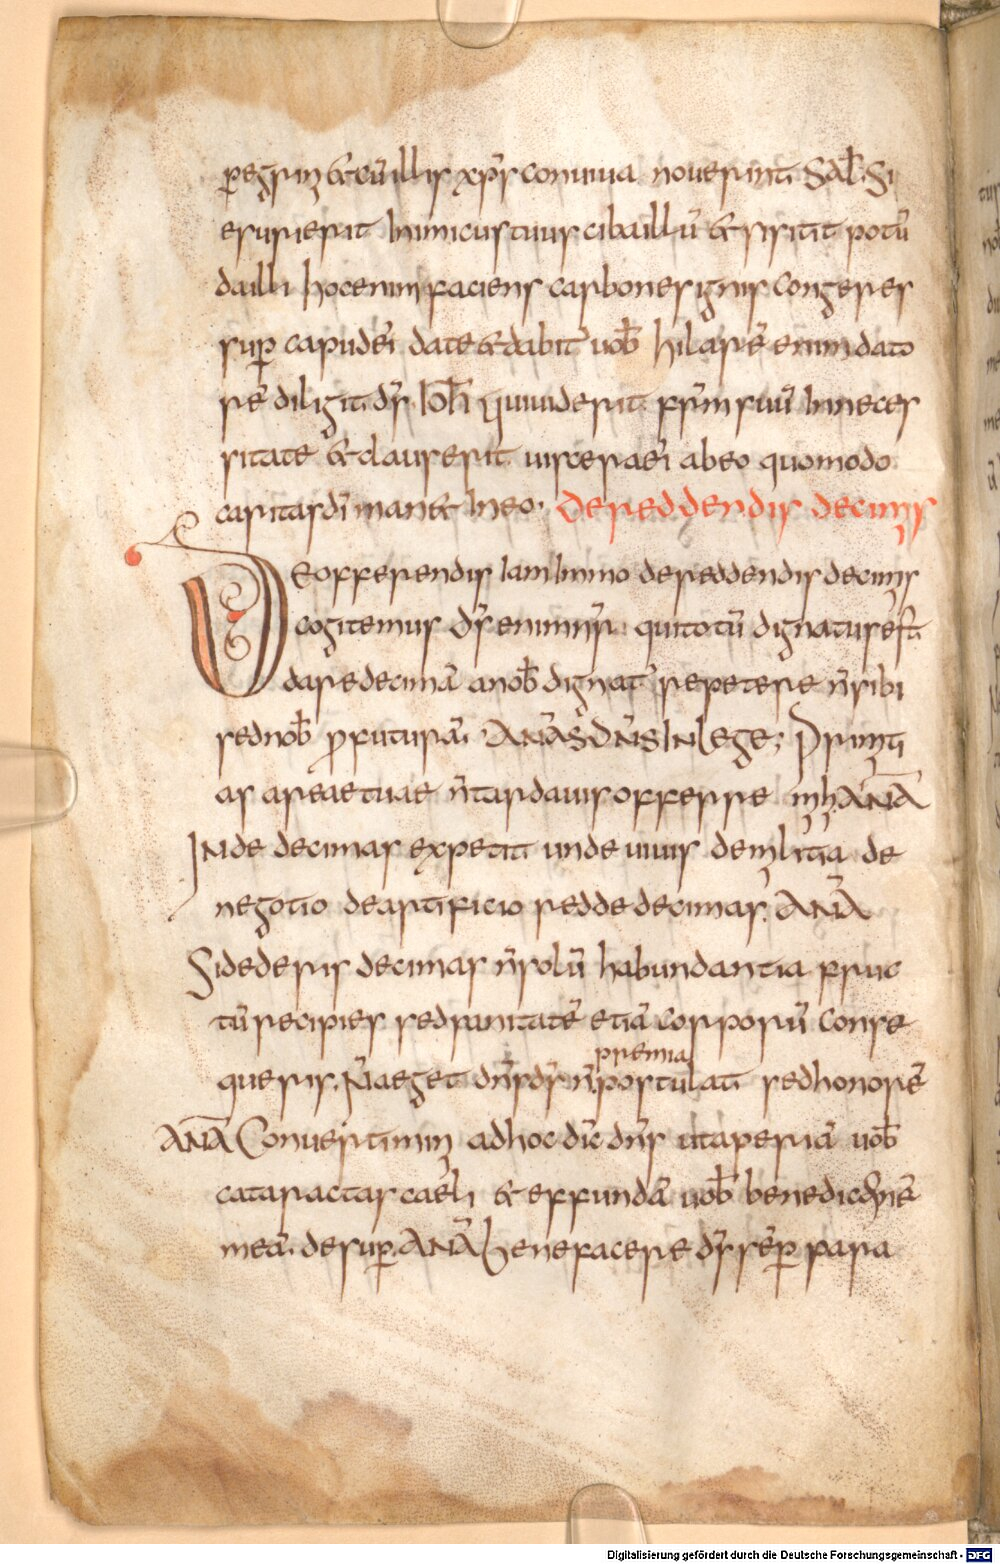 peregrini & cũ illis xp̃s conuiua nouerint. Sal̃. Si
esurierit inimicus tuus ciba illũ & si sitit potũ
da illi hoc enim faciens carbones ignis congeres
sup̱ caput dei date & dabit̃ uob̃ hilarẽ enim dato
rẽ diligit d̃s. Ioh̃ qui uiderit frm̃ suũ in neces
sitate & clauserit uiscera ei abeo quomodo
caritas dĩ man& in eo. De reddendis decimis
De offerendis iam immo de reddendis decimis
cogitemus d̃s enim nr̃. qui totũ dignatus est
dare decimã a nob̃ dignat̃ repetere ñ sibi
sed nob̃ profuturã. ANÃS DÑS IN lege; Primiti
as areae tuae ñ tardauis offerre mihi. ANÃ
INde decimas expetit unde uiuis de militia de
negotio de artificio redde decimas. ANÃ
Si dederis decimas ñ solũ habundantia fruc
tũ recipies sed sanitatẽ etiã corporũ conse
queris. Ñ aeget dñs d̃s ñ postulat sed honorẽ
premia
ANÃ Conuertimini ad hoc dic̃ dñs ut aperiã uob̃
cataractas caeli & effundã uob̃ benedictionẽ
meã. desup̱. ANÃ Benefacere d̃s sẽp̱ para